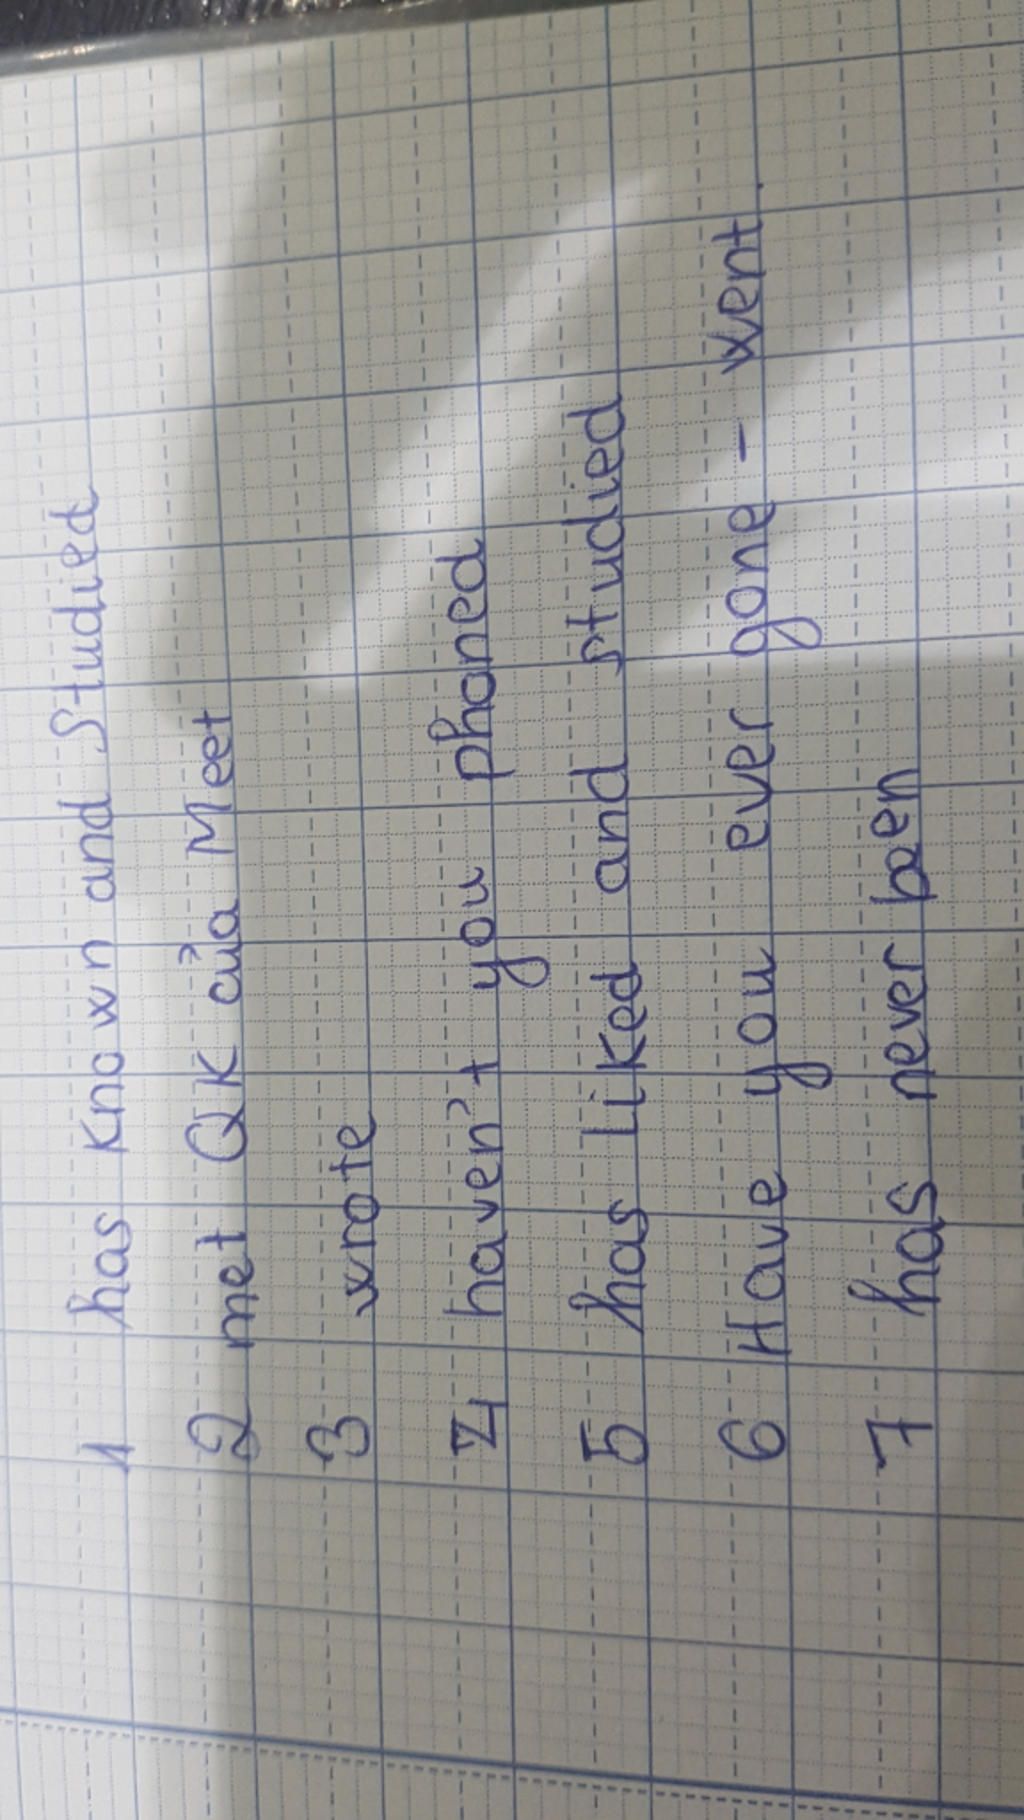 1 has known and Studied
2 met QK của Meet
3 wrote
4 haven't you phoned
5 has liked and studied
6 Have you ever gone - went.
7 has never been